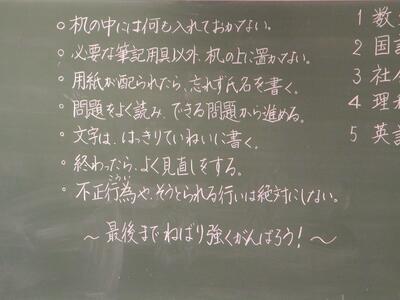 ◦ 机の中には何も入れておかない。
◦ 必要な筆記用具以外、机の上に置かない。
◦ 用紙が配られたら、忘れず氏名を書く。
◦ 問題をよく読み、できる問題から進める。
◦ 文字は、はっきりていねいに書く。
◦ 終わったら、よく見直しをする。
こうい
◦ 不正行為や、そうとられる行いは絶対にしない。
～最後までねばり強くがんばろう！～
1 数
2 国語
3 社
4 理
5 英語